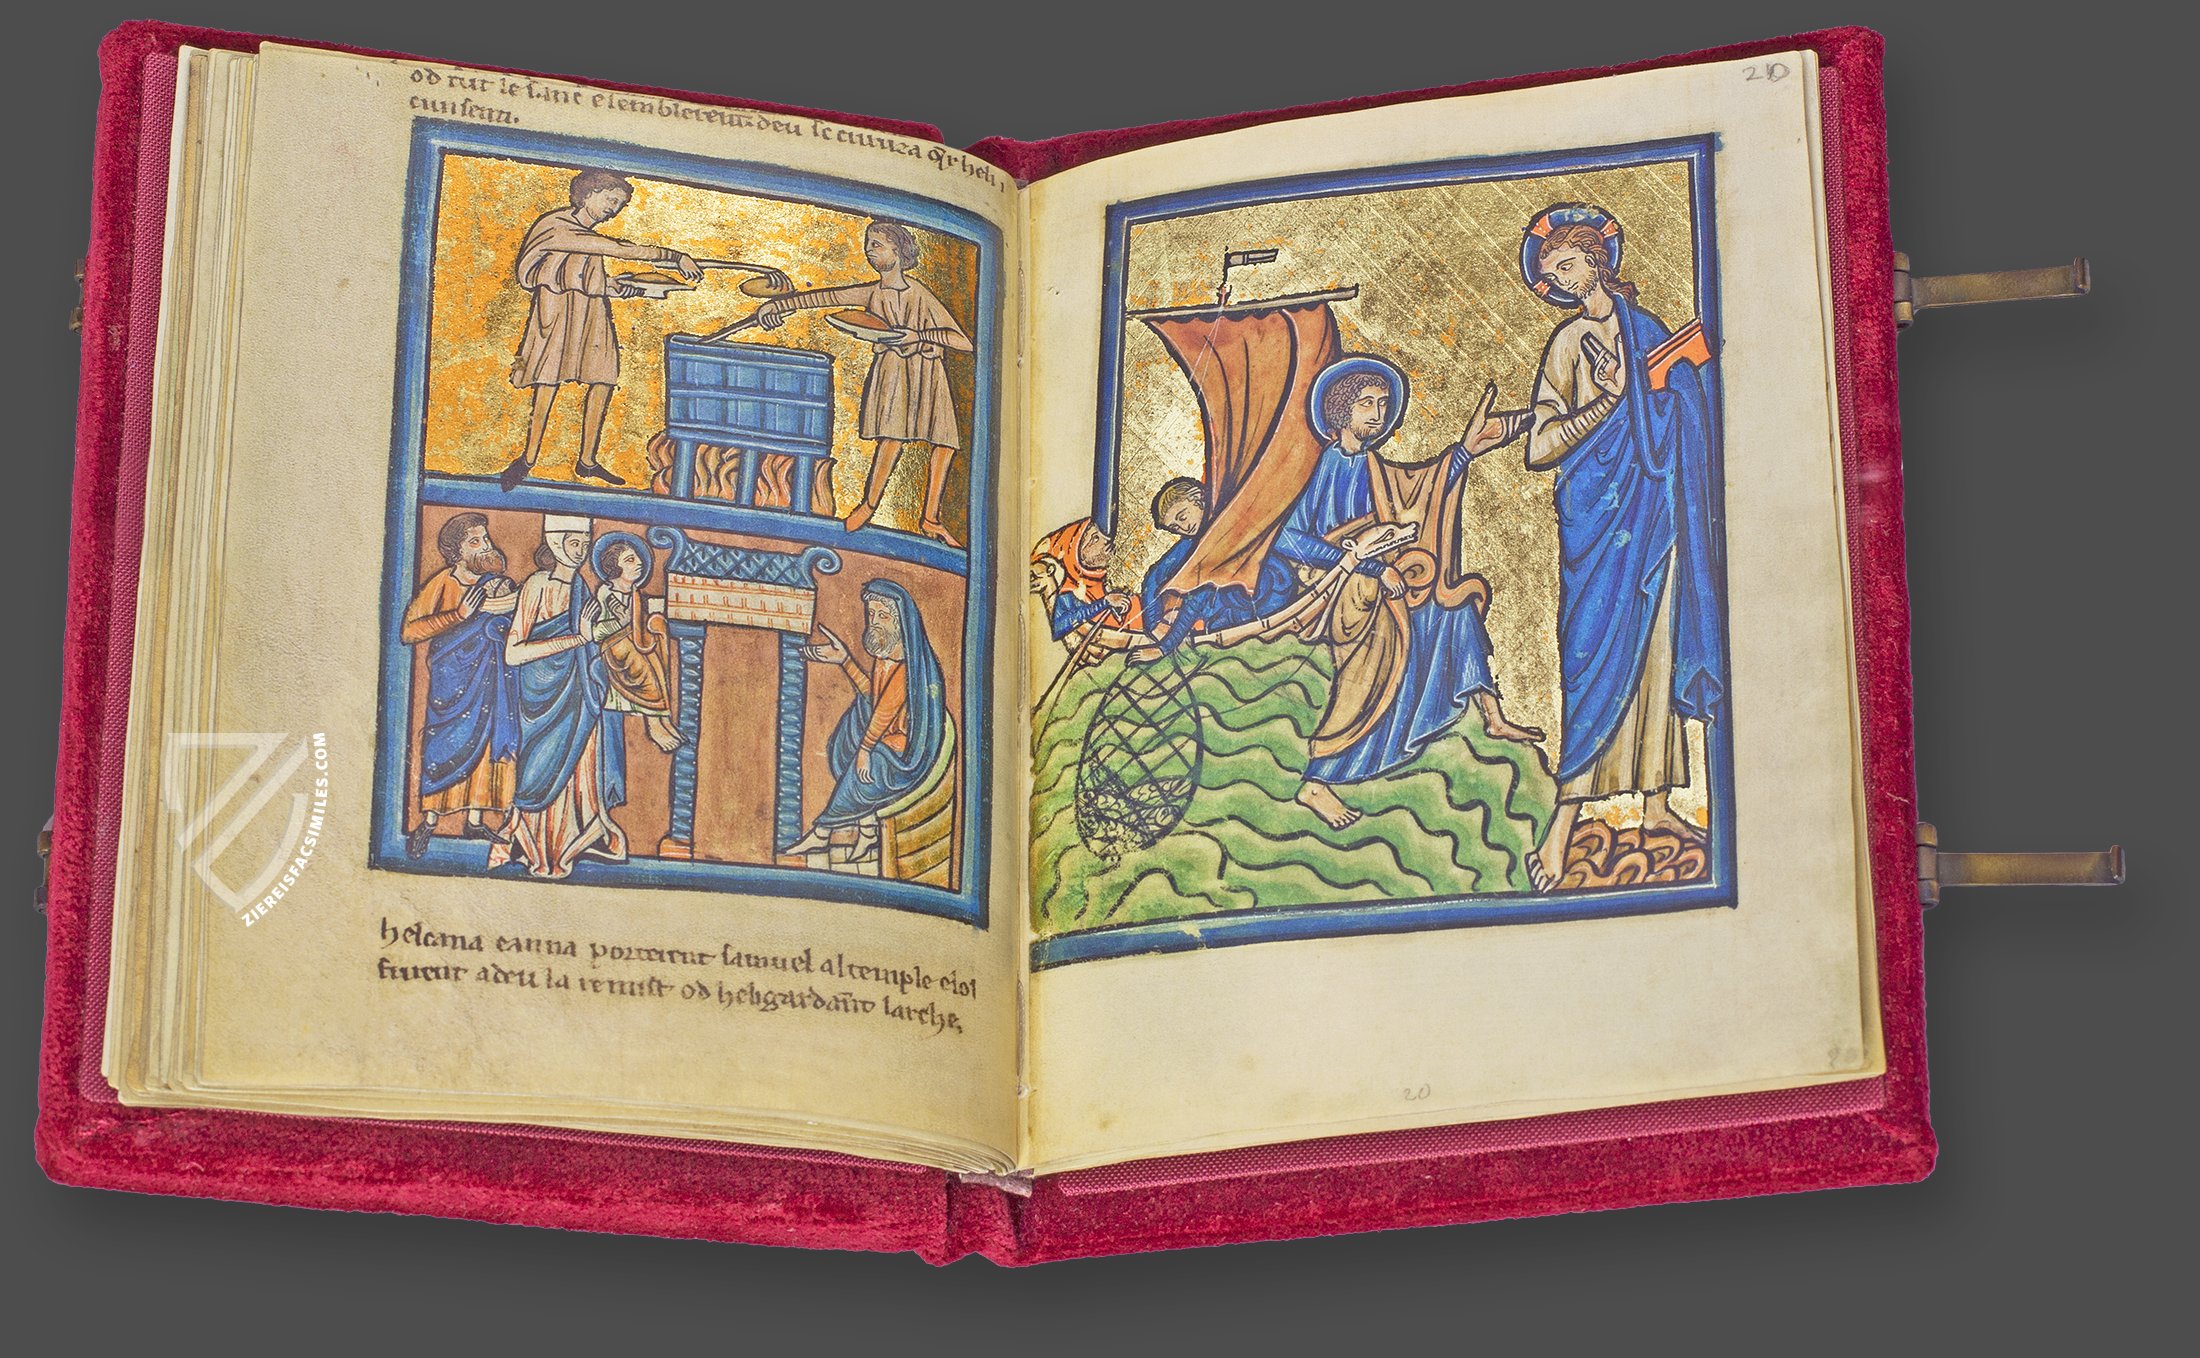 od rut le sanc e lemblerent deu se
cunseau.
helcana e anna porterent samuel al temple e lof
frirent a deu la remist od heli gardant larche,
20
20
ZIEREISFACSIMILES.COM